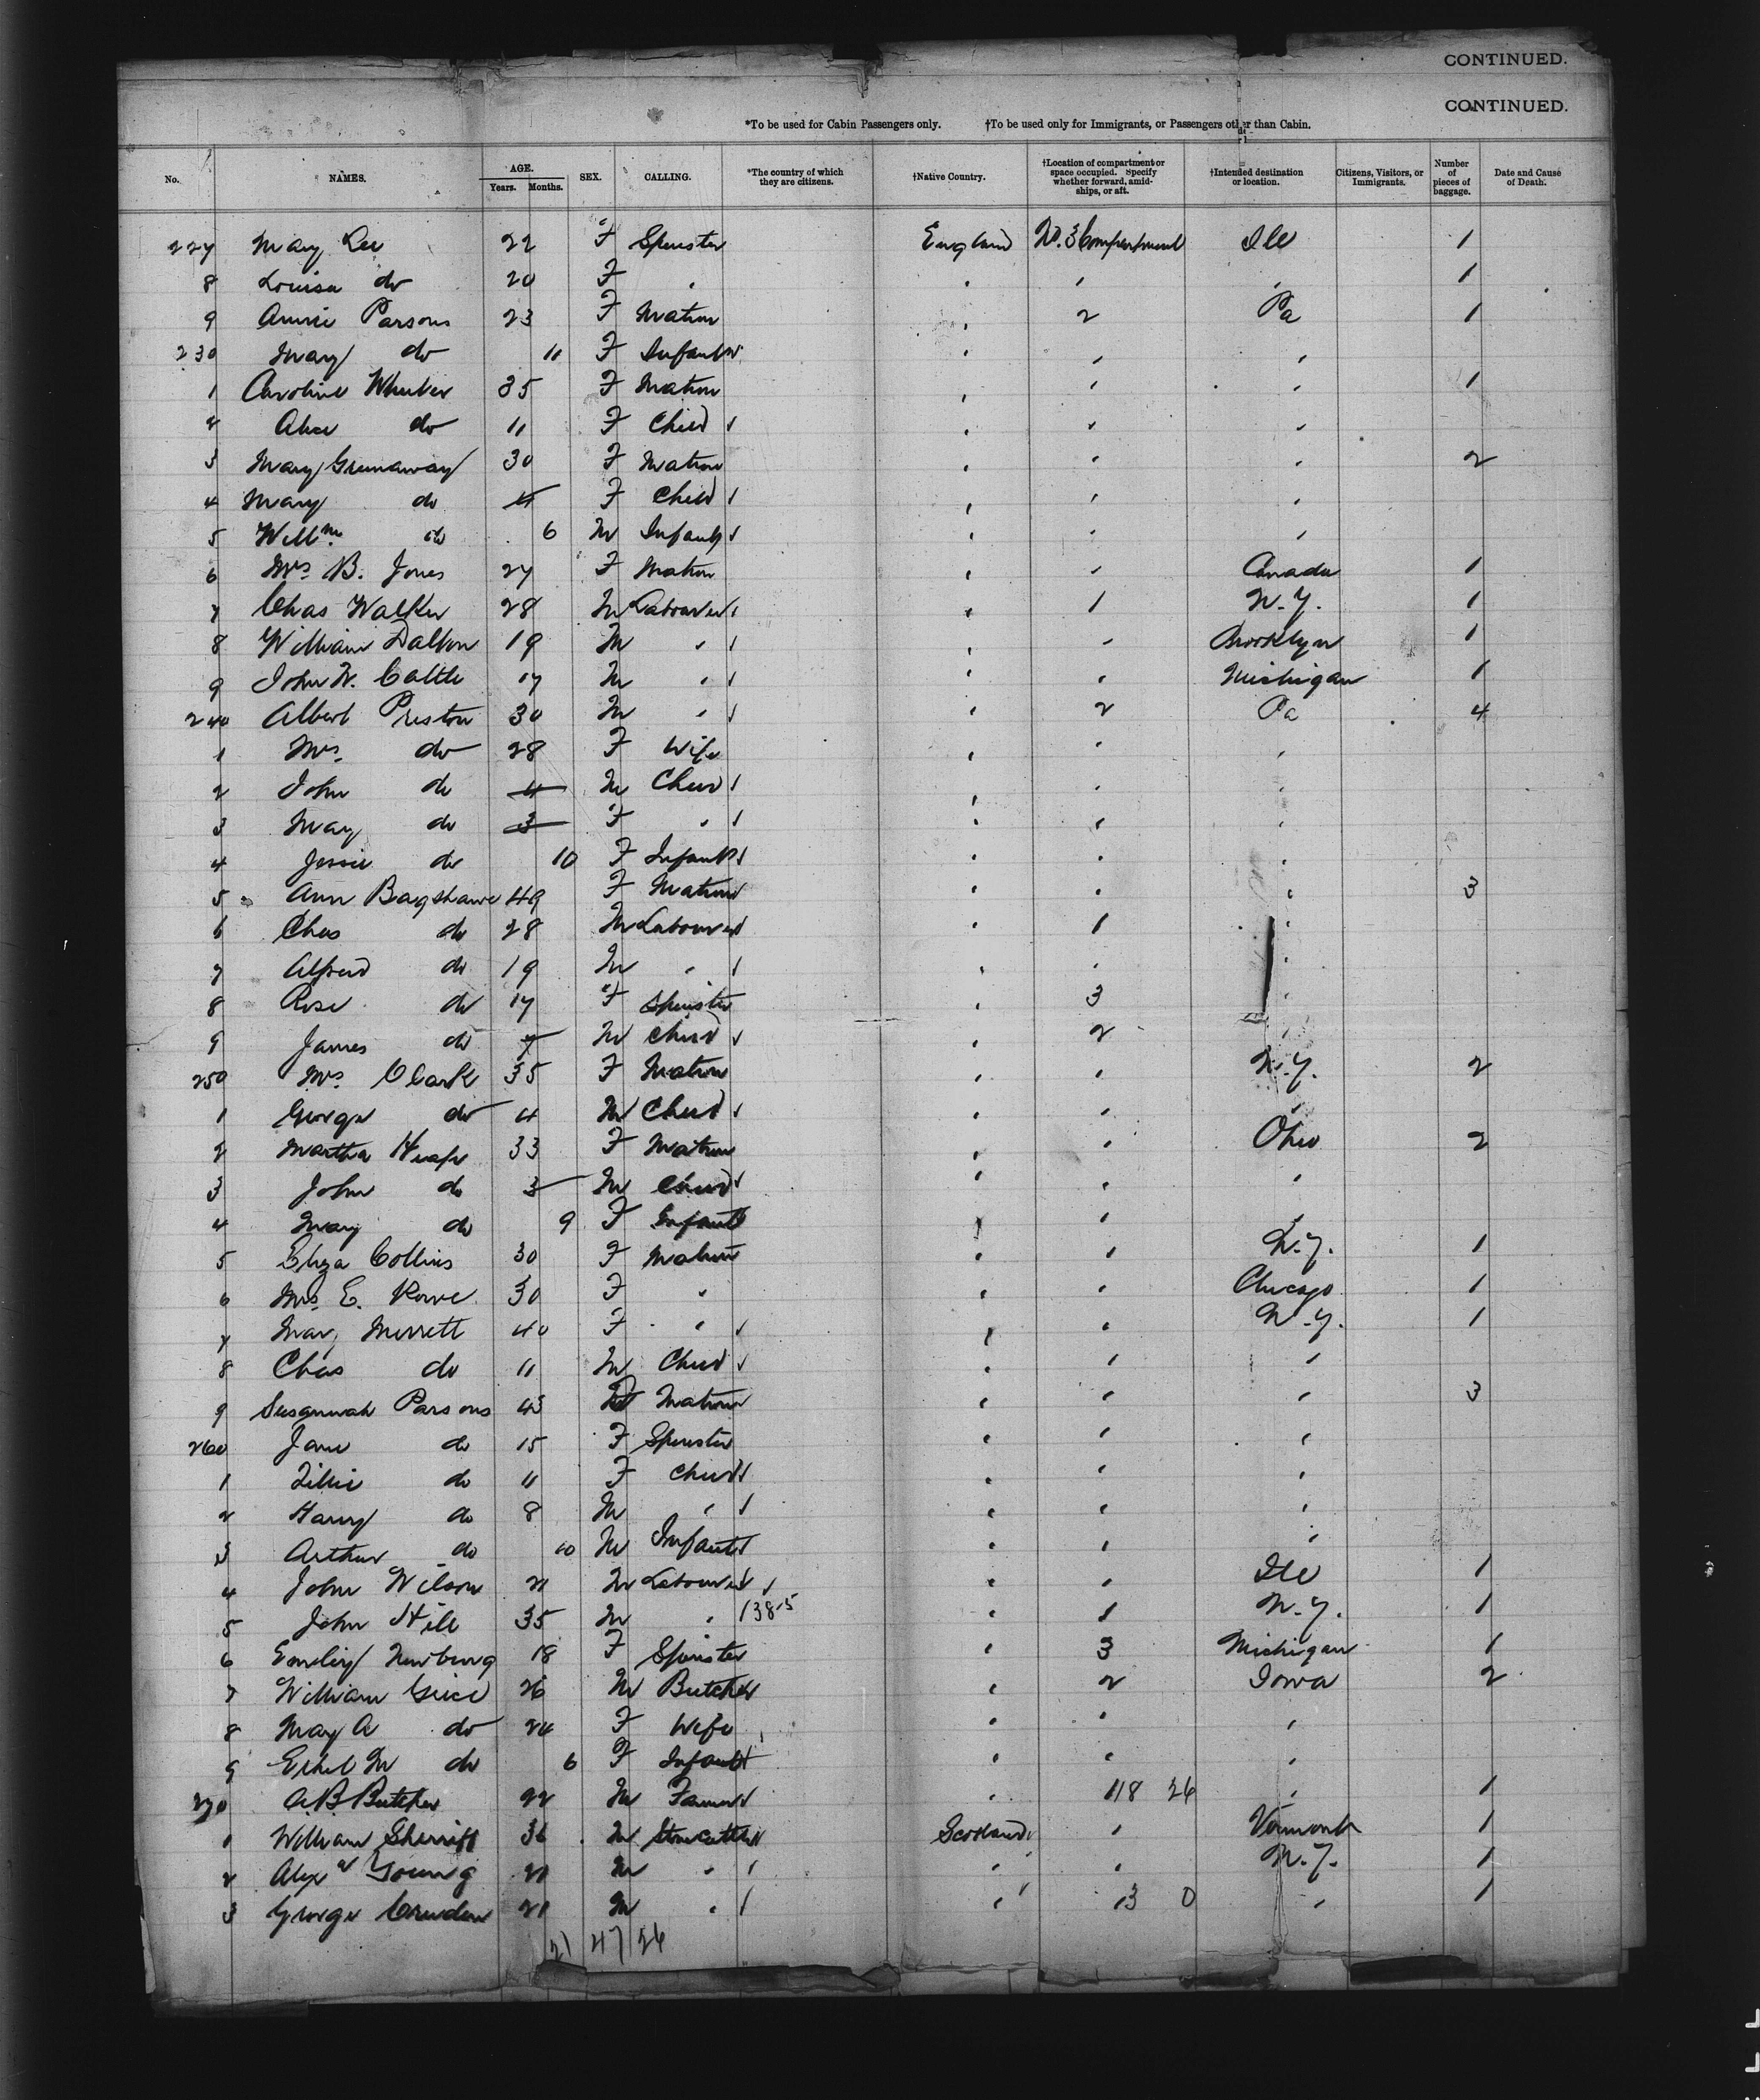 CONTINUED.
CONTINUED.
*To be used for Cabin Passengers only. †To be used only for Immigrants, or Passengers other than Cabin.
No. NAMES. AGE. Years. Months. SEX. CALLING. *The country of which they are citizens. †Native Country. †Location of compartment or space occupied. Specify whether forward, amidships, or aft. †Intended destination or location. Citizens, Visitors, or Immigrants. Number of pieces of baggage. Date and Cause of Death.
227 Mary Lee 22 F Spinster England No. 3 Compartment Ill 1
8 Louisa do 20 F " " " " 1
9 Annie Parsons 23 F Matron " 2 Pa 1
230 Mary do 11 F Infant " " "
1 Caroline 35 F Matron " " " 1
2 Alice do 11 F Child " " "
3 Mary Greenaway 30 F Matron " " " 2
4 Mary do 4 F Child " " "
5 Willm. do 6 M Infant " " "
6 Mrs. B. Jones 27 F Matron " " Canada 1
7 Chas Walker 28 M Labourer " 1 N.Y. 1
8 William Dalton 19 M " " " Brooklyn 1
9 John W. Cattle 17 M " " " Michigan 1
240 Albert Preston 30 M " " 2 Pa 4
1 Mrs. do 28 F Wife " " "
2 John do 4 M Child " " "
3 May do 3 F " " " "
4 Jessie do 10 F Infant " " "
5 Ann Bagshawe 49 F Matron " " " 3
6 Chas do 28 M Labourer " 1 "
7 Alfred do 19 M " " " "
8 Rose do 17 F Spinster " 3 "
9 James do 7 M Child " 2 "
250 Mrs. Clark 35 F Matron " " N.Y. 2
1 George do 4 M Child " " "
2 Martha Heape 33 F Matron " " Ohio 2
3 John do 3 M Child " " "
4 Mary do 9 F Infant " " "
5 Eliza Collins 30 F Matron " " N.Y. 1
6 Mrs. E. Rowe 30 F " " " Chicago 1
7 Mary Merrett 40 F " " " N.Y. 1
8 Chas do 11 M Child " " "
9 Susannah Parsons 43 F Matron " " " 3
260 Jane do 15 F Spinster " " "
1 Lillie do 11 F Child " " "
2 Harry do 8 M " " " "
3 Arthur do 10 M Infant " " "
4 John Wilson 21 M Labourer " " Ill 1
5 John Hill 35 M " 138-5 " 1 N.Y. 1
6 Emily Newburg 18 F Spinster " 3 Michigan 1
7 William Grice 26 M Butcher " 2 Iowa 2
8 May A do 24 F Wife " " "
9 Ethel M do 6 F Infant " " "
270 A.B. Butcher 22 M Farmer " 118 26 " 1
1 William Sherriff 36 M Stonecutter Scotland " Vermont 1
2 Alexr Young 21 M " " " N.Y. 1
3 George 21 M " " 13 0 " 1
21 47 26